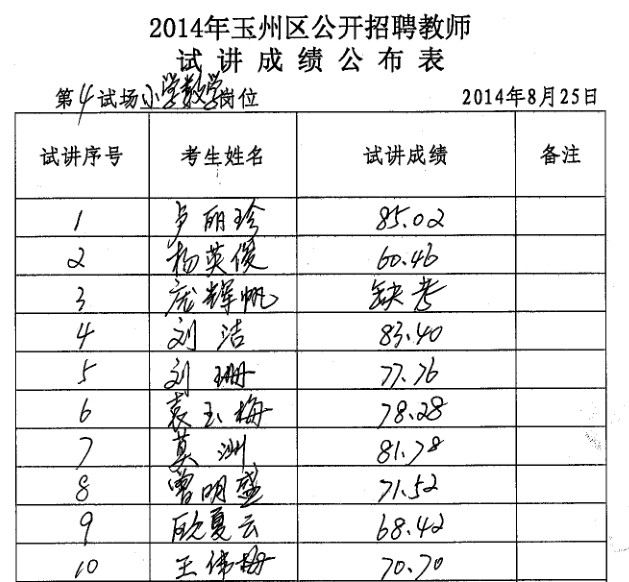 2014年玉州区公开招聘教师
试讲成绩公布表
第4试场小学数学岗位 2014年8月25日
试讲序号 考生姓名 试讲成绩 备注
1 卢丽珍 85.02
2 杨英俊 60.46
3 庞辉帆 缺考
4 刘洁 83.40
5 刘珊 77.76
6 袁玉梅 78.28
7 莫洲 81.78
8 曾明盛 71.52
9 欧夏云 68.42
10 王伟梅 70.70